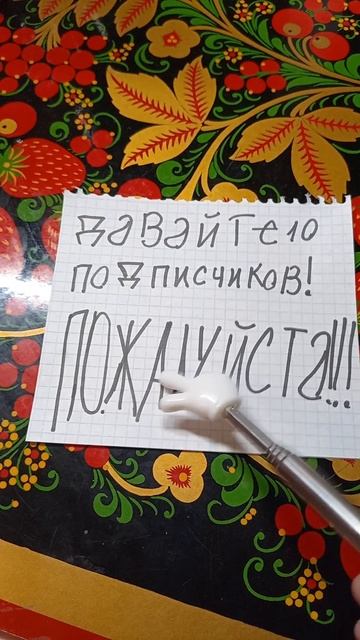 давайте 10
подписчиков!
ПОЖАЛУЙСТА!!!